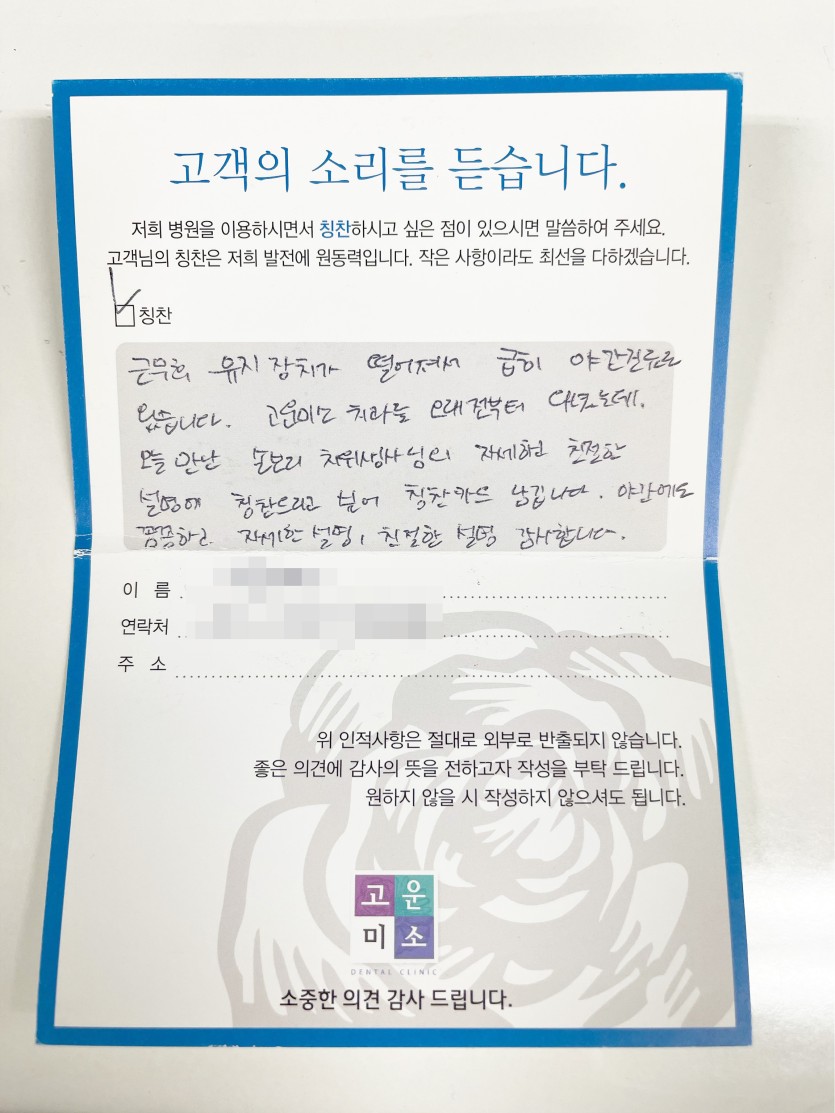 고객의 소리를 듣습니다.
저희 병원을 이용하시면서 칭찬하시고 싶은 점이 있으시면 말씀하여 주세요.
고객님의 칭찬은 저희 발전에 원동력입니다. 작은 사항이라도 최선을 다하겠습니다.
칭찬
근무후 유지장치가 떨어져서 급히 야간진료로
왔습니다. 고운미소 치과를 오래전부터 다녔는데,
오늘 만난 손보리 치위생사님의 자세하고 친절한
설명에 칭찬드리고 싶어 칭찬카드 남깁니다. 야간에도
꼼꼼하고 자세한 설명, 친절한 설명 감사합니다.
이 름
연락처
주 소
위 인적사항은 절대로 외부로 반출되지 않습니다.
좋은 의견에 감사의 뜻을 전하고자 작성을 부탁 드립니다.
원하지 않을 시 작성하지 않으셔도 됩니다.
고운
미소
DENTAL CLINIC
소중한 의견 감사 드립니다.